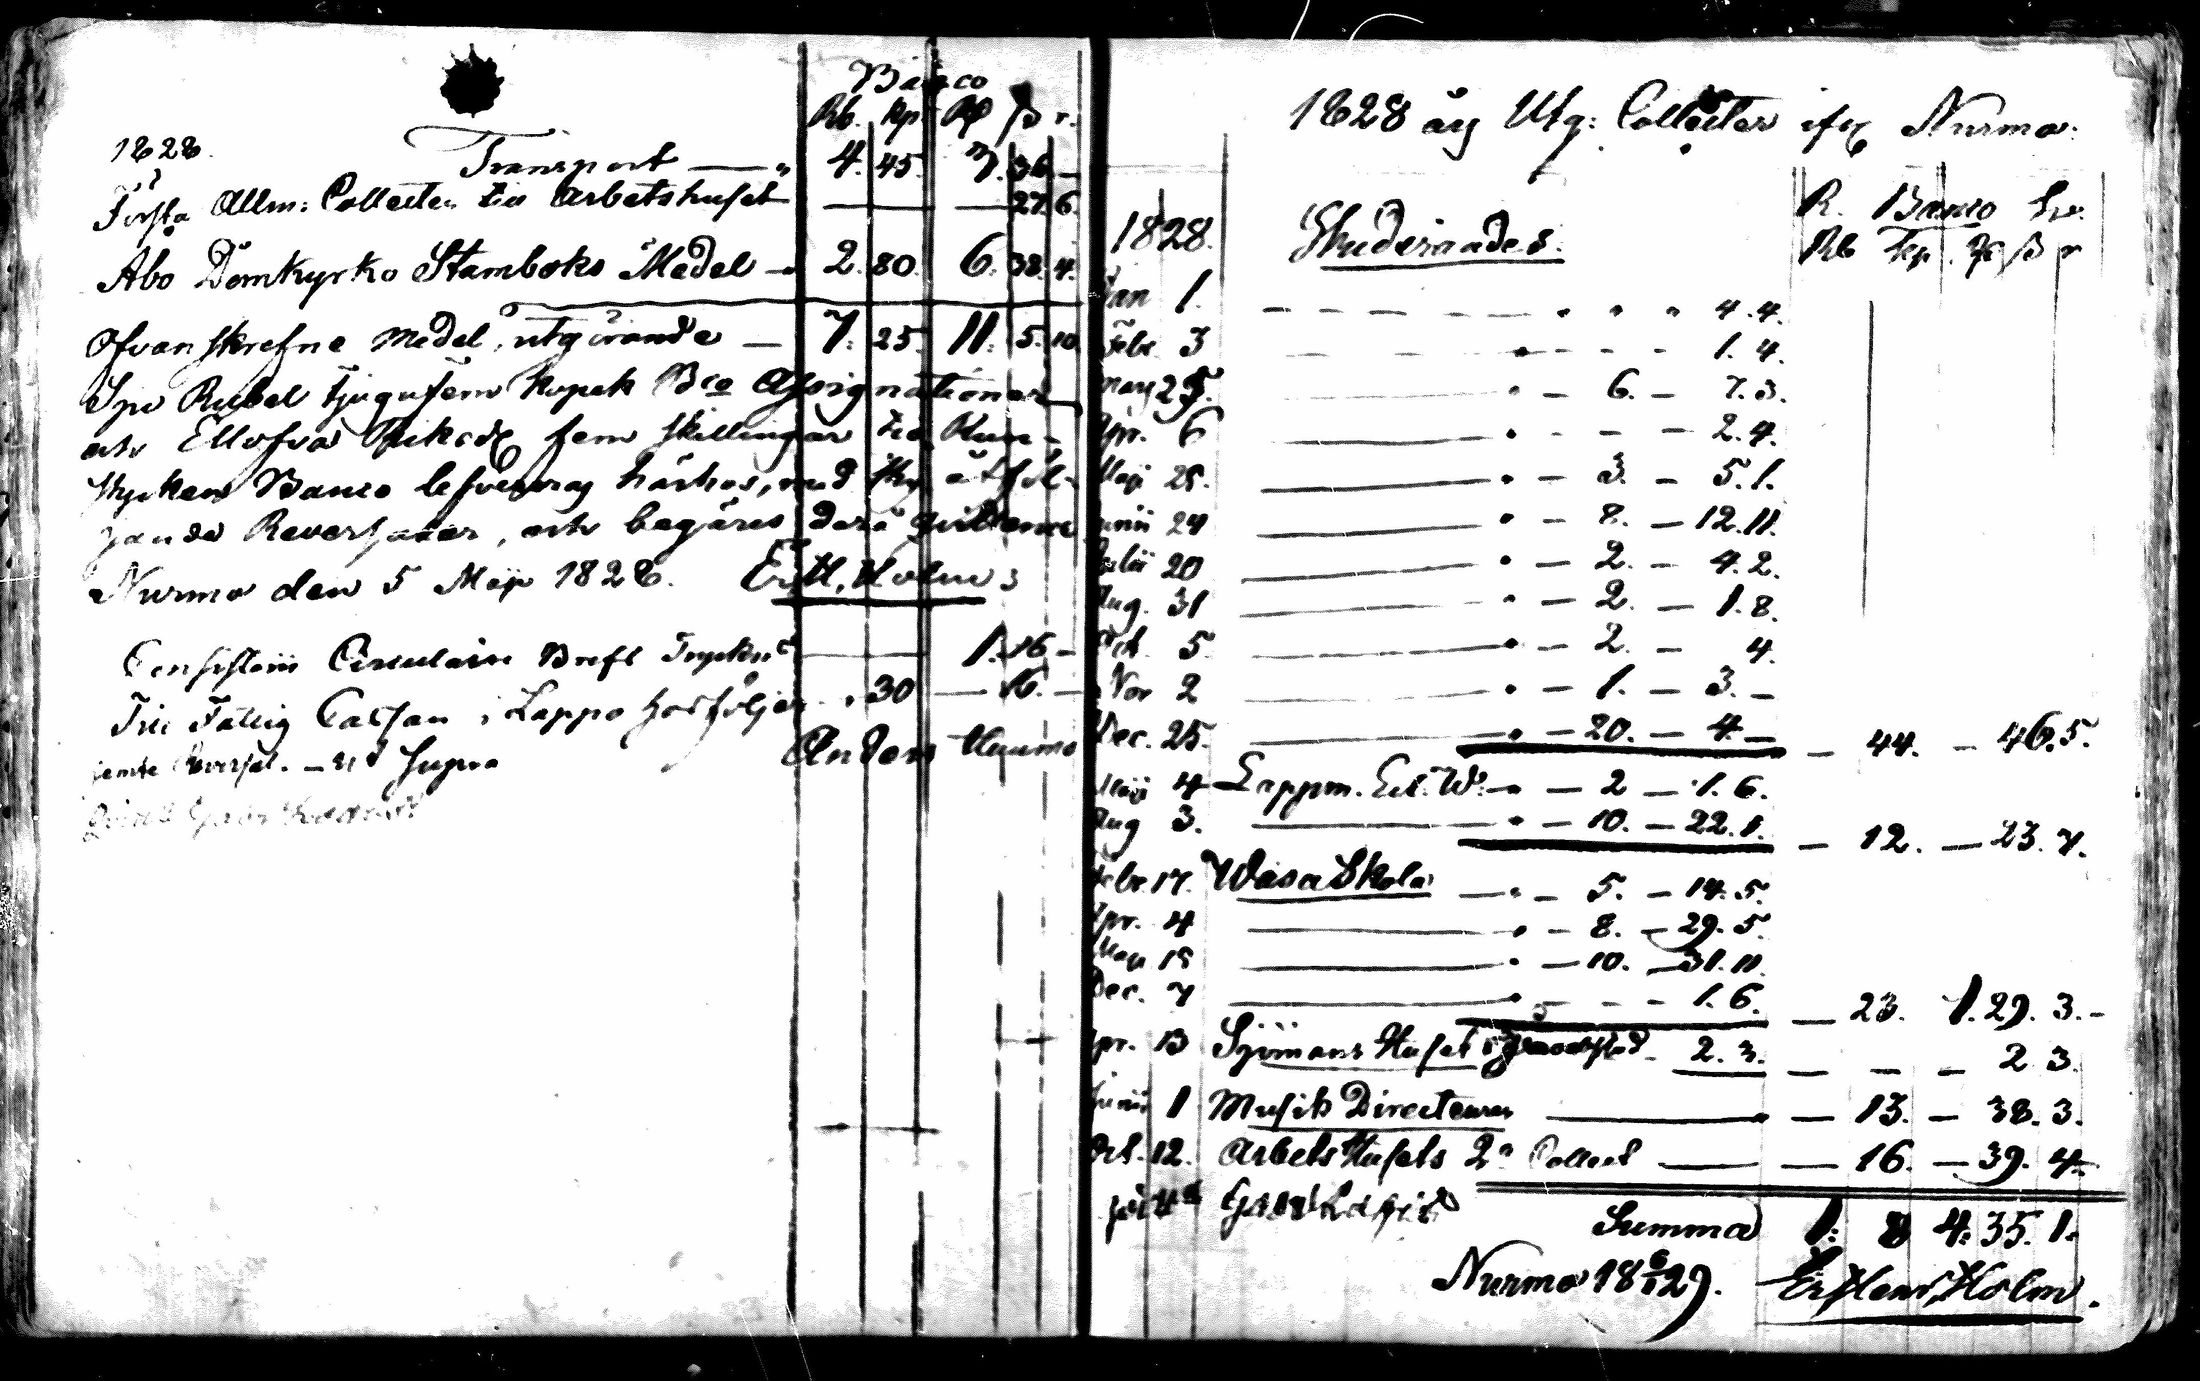 Banco
Rb. kp. Rd ß r.
1828. Transport — " 4. 45. 7. 36 —
Första Allm: Collecten til Arbetshuset — — 27. 6.
Abo Domkyrko Stamboks Medel — 2. 80. 6. 38. 4.
Ofvanskrefne medel, utgörande — 7. 25. 11. 5. 10
Sju Rubel tjugufem kopek Bco Assignationer
och Ellofva Riksd. fem skillingar tio Run-
stycken Banco lefvereras härhos, med åtföl-
jande Reversaler, och begäres derå quittence
Nurmo den 5 Maji 1828. Er. H. Holm
Consistorii Circulaire Bref Tryckn — 1. 16 —
Till Fattig Cassan i Lappo 30 — 16. —
jemte Reversal. — ut Supra Anders
1828 års Utg: Collecter ifr. Nurmo.
R. Banco Sv.
Rb kp. Rd ß r
1828. Studerandes.
Jan 1. — 4. 4.
Febr. 3 — 1. 4.
Mars 25. — 6. — 7. 3.
Apr. 6 — 2. 4.
Maji 25. — 3. — 5. 1.
Junii 24 — 8. — 12. 11.
Julii 20 — 2. — 4. 2.
Aug. 31 — 2. — 1. 8.
Oct. 5 — 2. — 4.
Nov 2 — 1. — 3. —
Dec. 25. — 20. — 4 — — 44. — 46. 5.
Maji 4 Lappm. Ecl. W. — 2 — 1. 6.
Aug 3. — 10. — 22. 1. — 12. — 23. 7.
Febr. 17. Wasa Skola — 5. — 14. 5.
Apr. 4 — 8. — 29. 5.
Maji 15 — 10. — 31. 11.
Dec. 7 — 1. 6. — 23. 1. 29. 3. —
Apr. 13 Sjömans Huset i 2. 3. — — — 2 3.
Junii 1 Musik Directeuren — 13. — 38. 3.
Oct. 12. Arbets Husets 2a Collect — 16. — 39. 4
Summa 1: 8 4: 35. 1.
Nurmo 18 6/1 29. Er Henr. Holm.